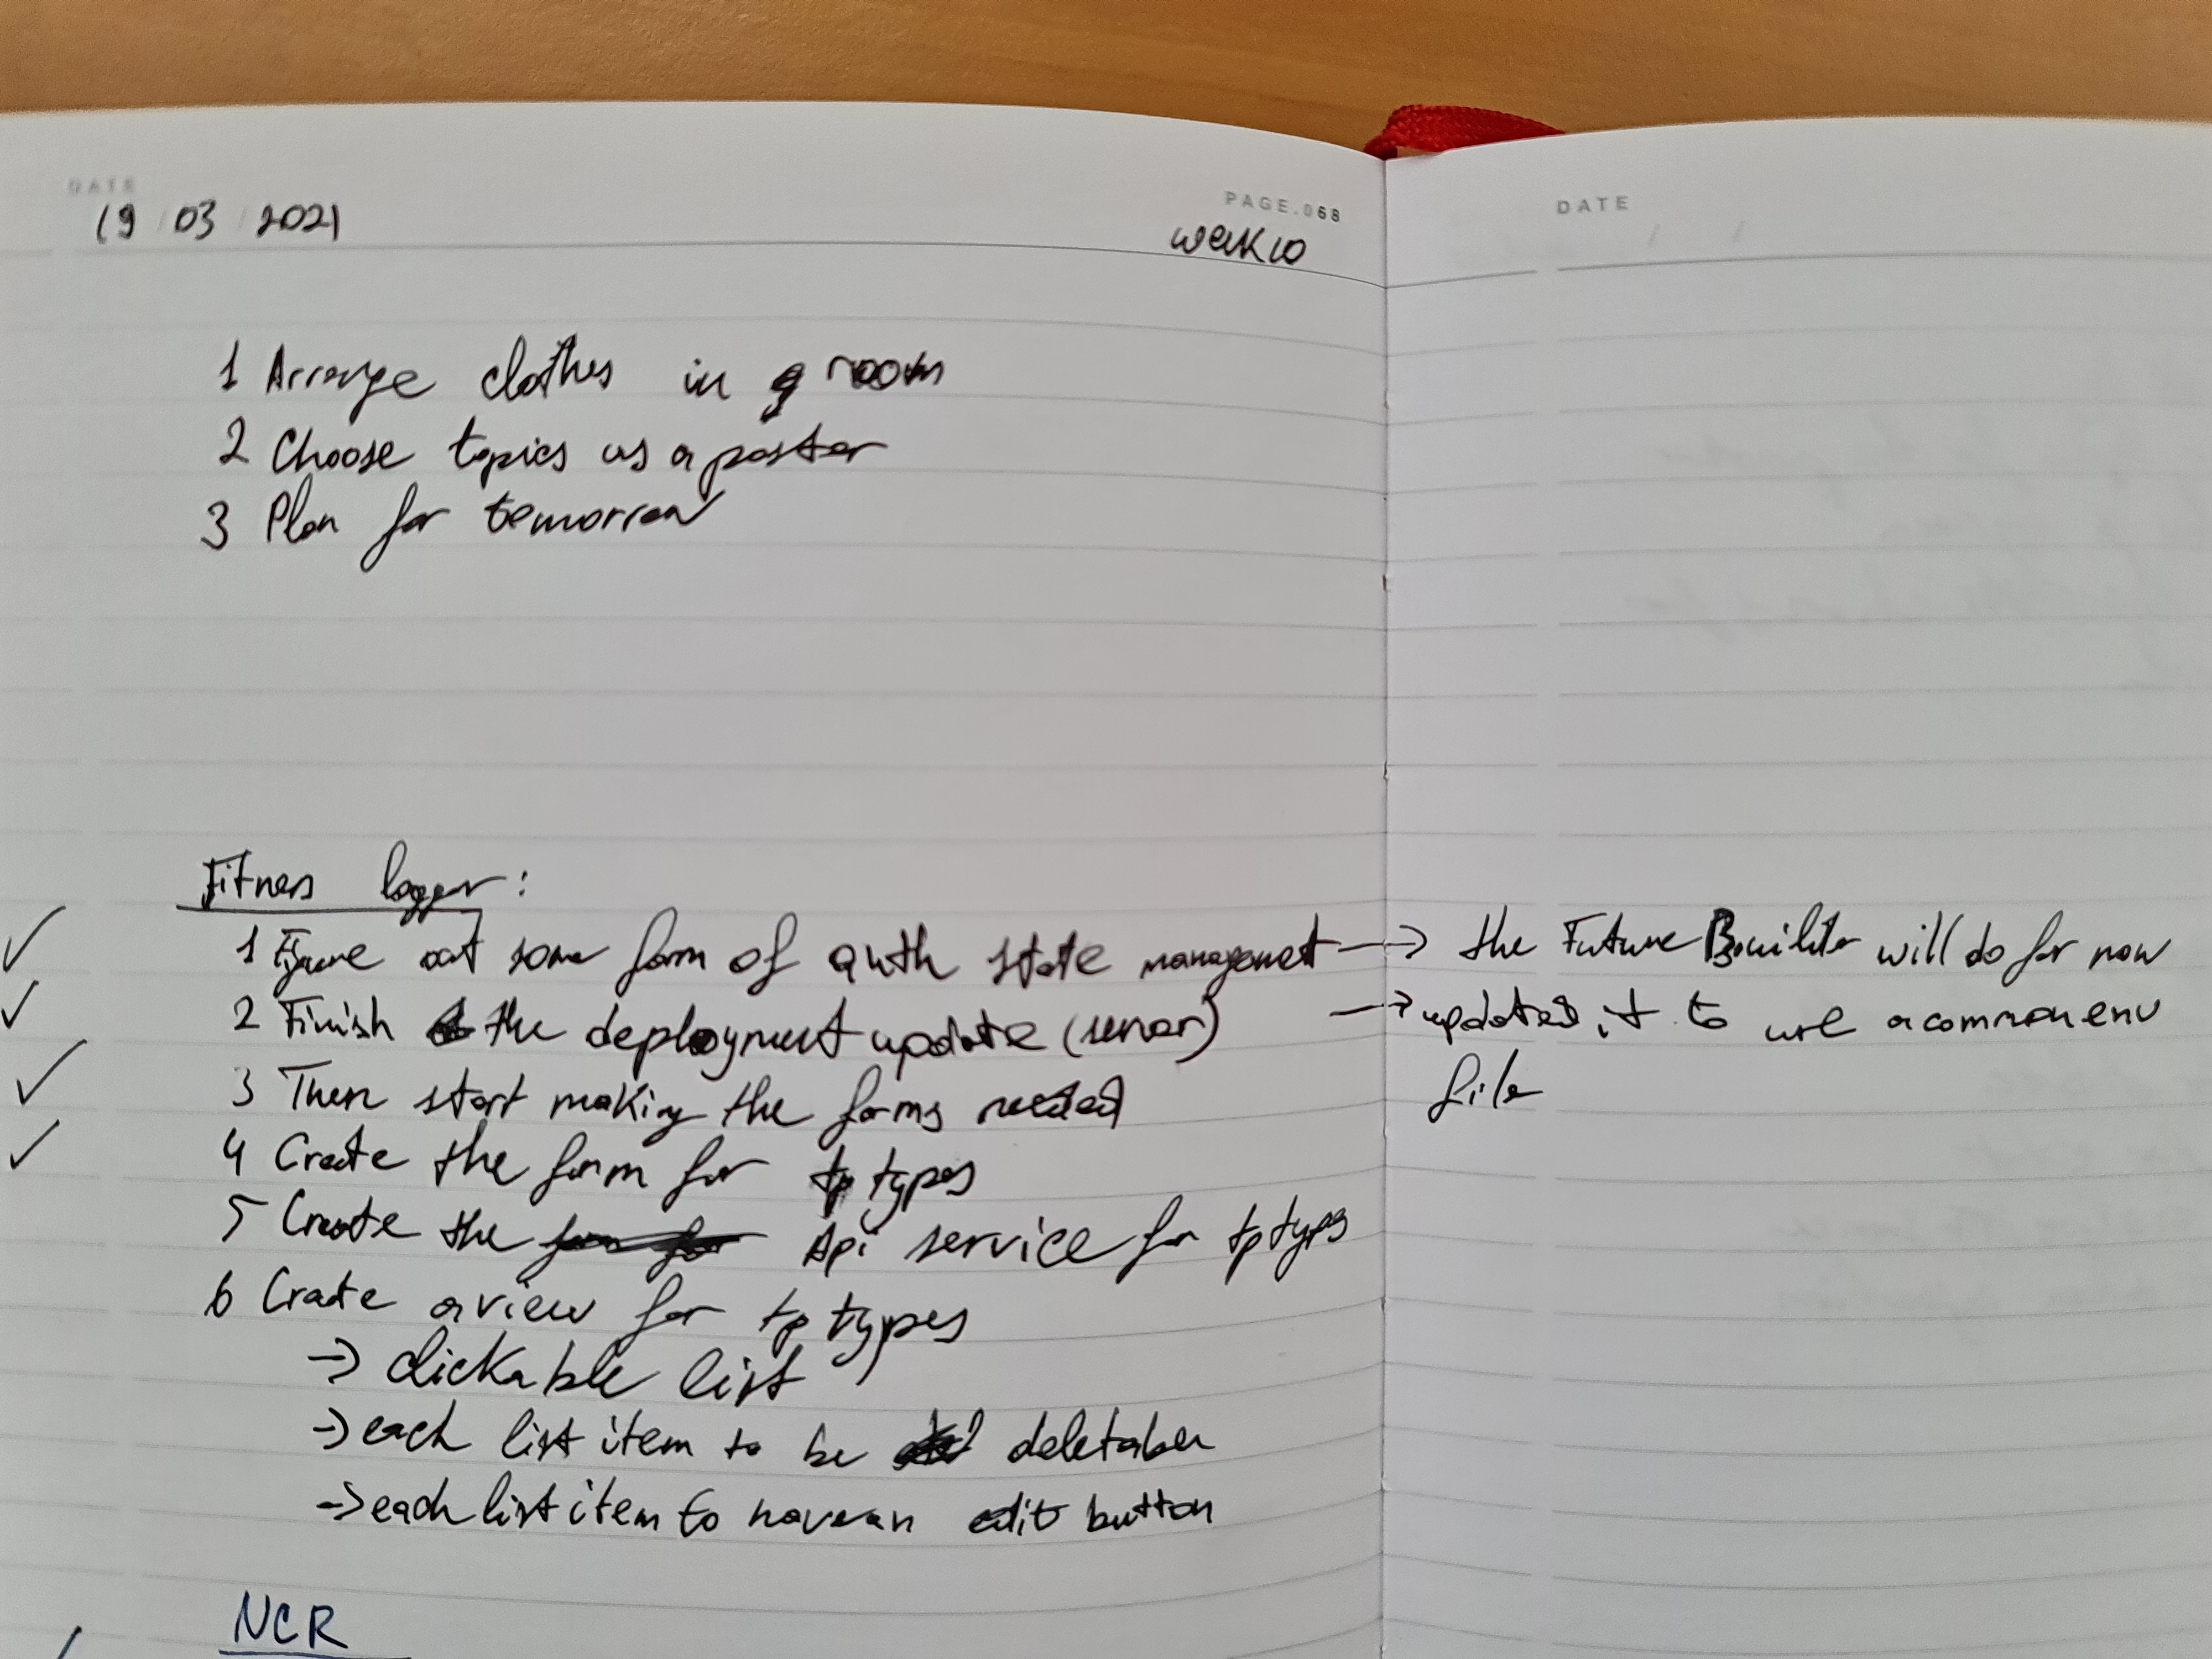 DATE
19 / 03 / 2021
PAGE.068
week 10
DATE
/ /
1 Arrange clothes in g room
2 Choose topics as a poster
3 Plan for tomorrow
Fitness logger:
1 Figure out some form of auth state management → the Future Builder will do for now
2 Finish the deployment update (server) → updated it to use a common env
file
3 Then start making the forms needed
4 Create the form for tp types
5 Create the Api service for tp types
6 Create a view for tp types
→ clickable list
→ each list item to be
→ each list item to have an edit button
NCR